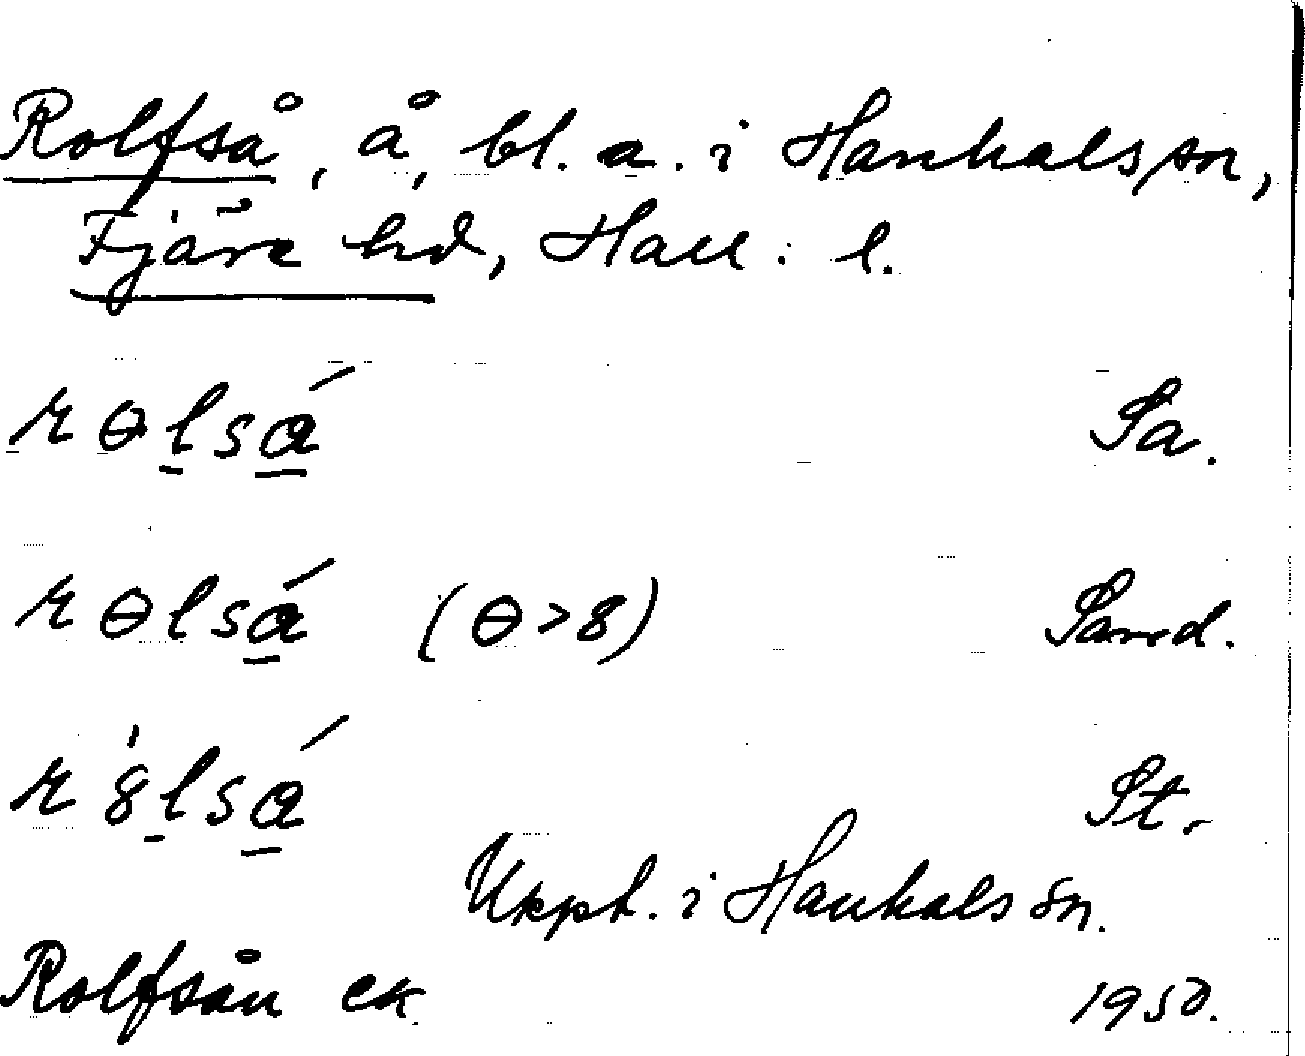 Rolfså, å, bl. a. i Hanhals sn,
Fjäre hd, Hall. l.
rɵlsɑ́ Sa.
rɵlsɑ́ (ɵ>8) Sand.
r8lsɑ́ St.
Uppt. i Hanhals sn.
Rolfsån ek 1950.